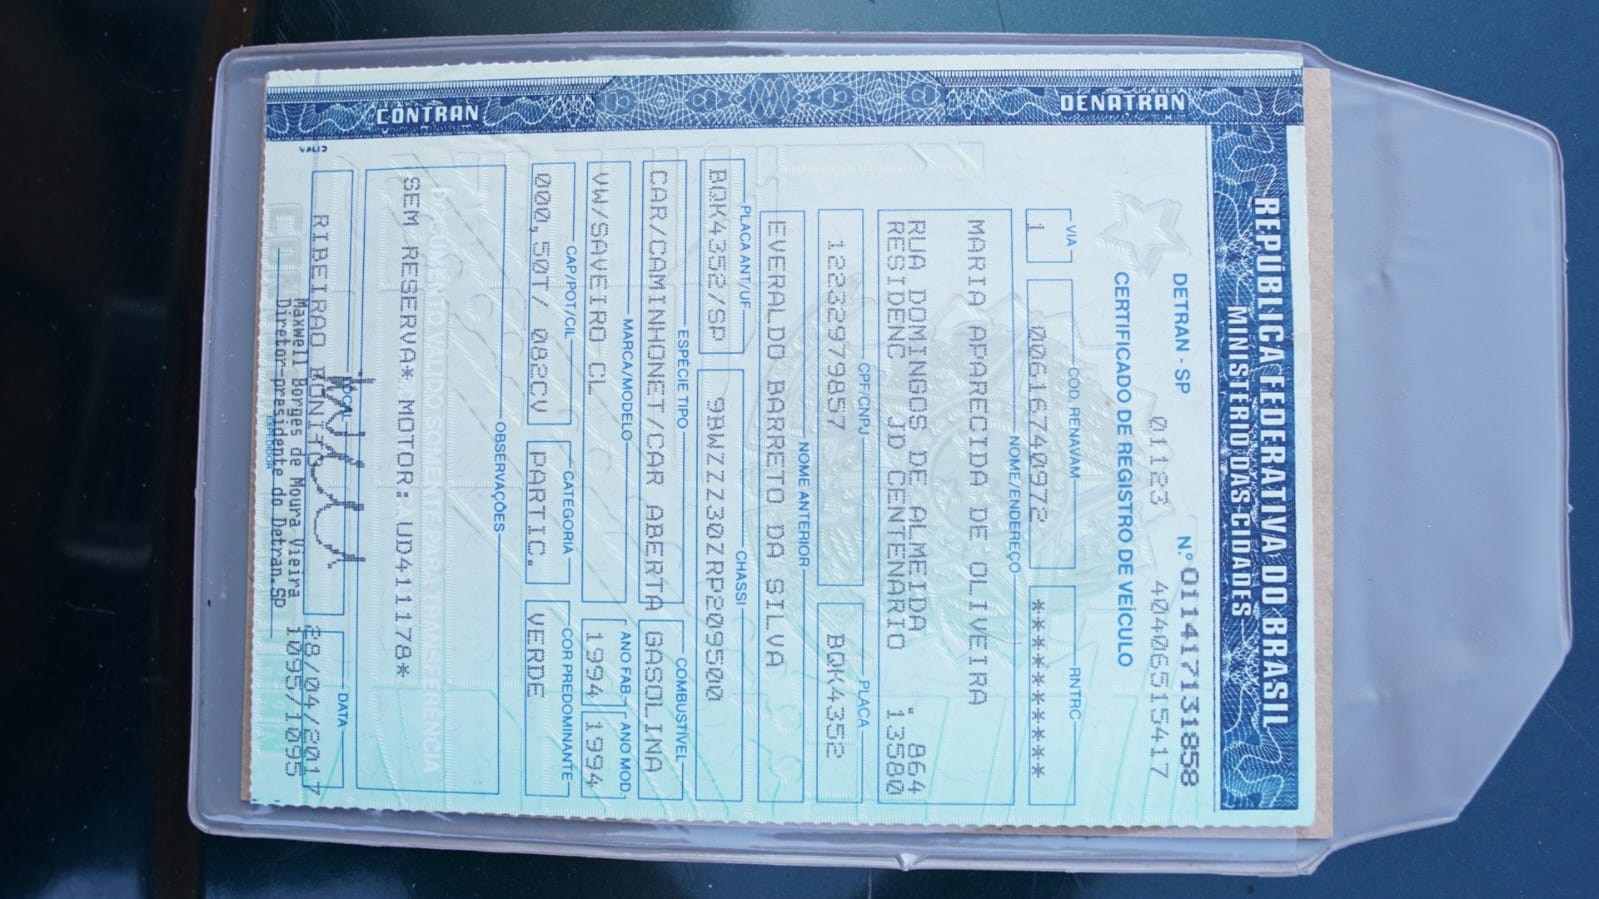 REPÚBLICA FEDERATIVA DO BRASIL
MINISTÉRIO DAS CIDADES
DENATRAN
CONTRAN
DETRAN - SP
N.º 011417131858
01123 40406515417
CERTIFICADO DE REGISTRO DE VEÍCULO
VIA COD. RENAVAM RNTRC
1 00616740972 **********
NOME/ENDEREÇO
MARIA APARECIDA DE OLIVEIRA
RUA DOMINGOS DE ALMEIDA 864
RESIDENC JD CENTENARIO 13580
CPF/CNPJ PLACA
12232979857 BQK4352
NOME ANTERIOR
EVERALDO BARRETO DA SILVA
PLACA ANT/UF CHASSI
BQK4352/SP 9BWZZZ30ZRP209500
ESPÉCIE TIPO COMBUSTÍVEL
CAR/CAMINHONET/CAR ABERTA GASOLINA
MARCA/MODELO ANO FAB. ANO MOD.
VW/SAVEIRO CL 1994 1994
CAP/POT/CIL CATEGORIA COR PREDOMINANTE
000,50T/ 082CV PARTIC. VERDE
OBSERVAÇÕES
SEM RESERVA* MOTOR:AUD411178*
DOCUMENTO VÁLIDO SOMENTE PARA TRANSFERÊNCIA
LOCAL DATA
RIBEIRAO BONITO 28/04/2017
Maxwell Borges de Moura Vieira 1095/1095
Diretor-presidente do Detran.SP
EXPEDIDOR
VALID